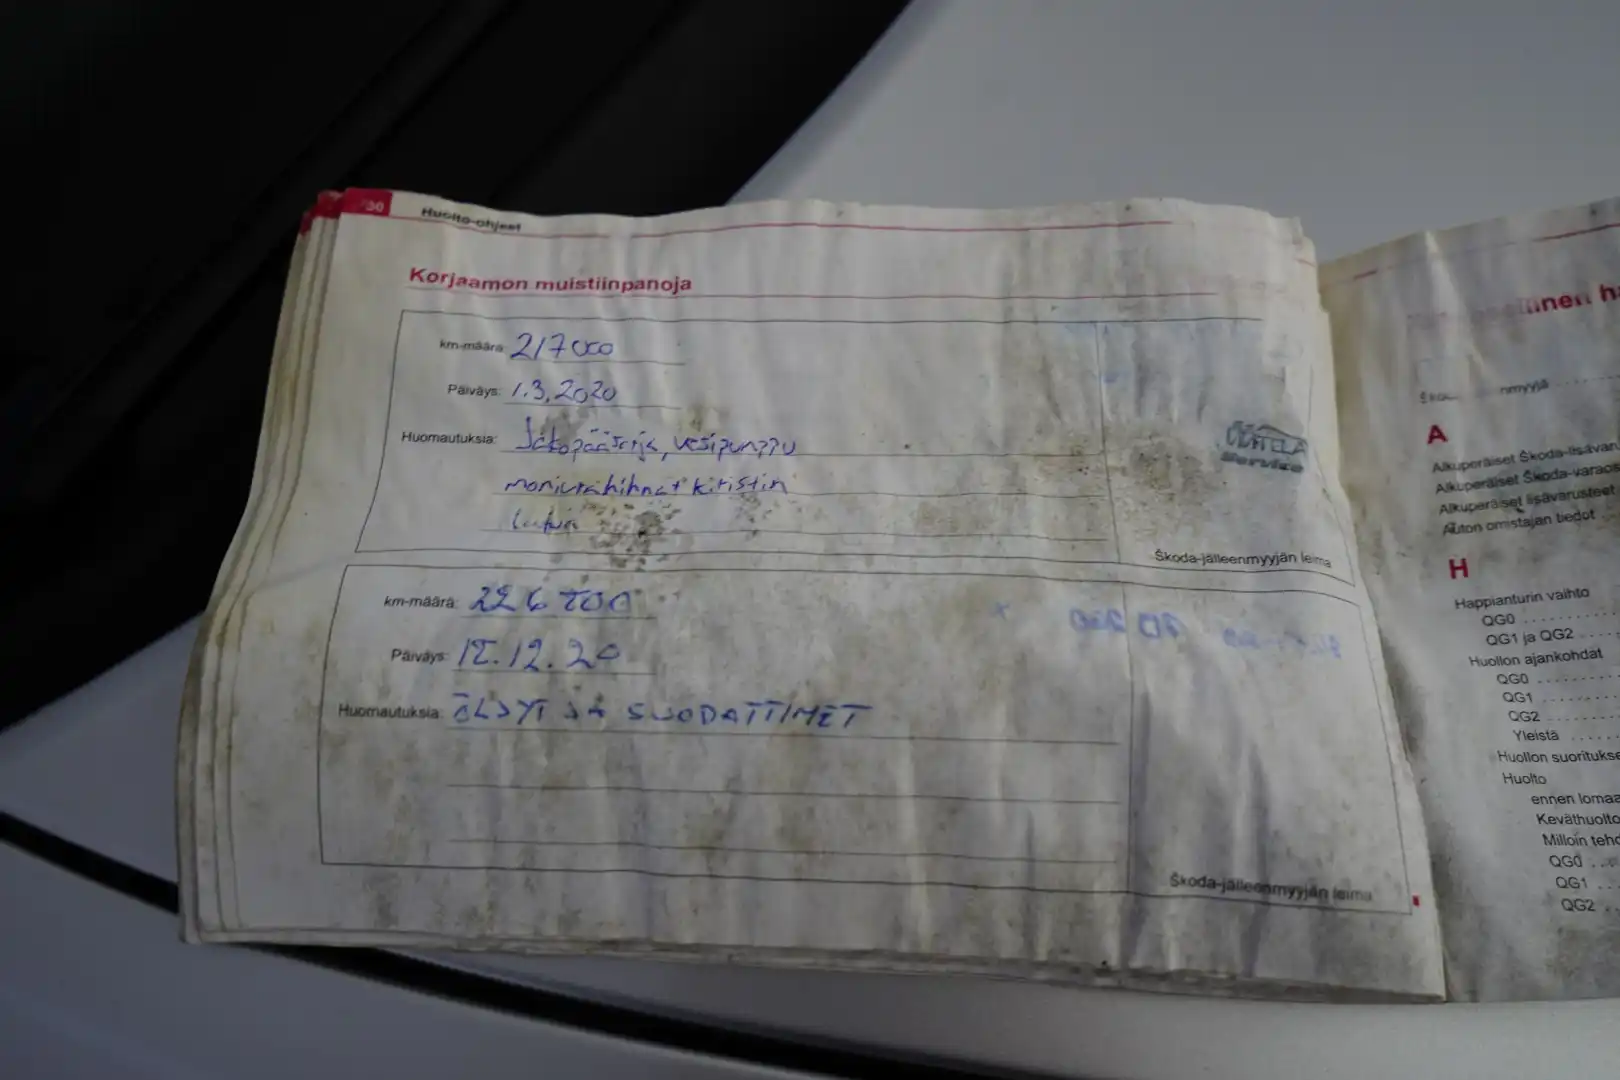 30 Huolto-ohjeet
Korjaamon muistiinpanoja
km-määrä: 217000
Päiväys: 1.3.2020
Huomautuksia: Jakopääsarja, vesipumppu
moniurahihnat kiristin
Service
Škoda-jälleenmyyjän leima
km-määrä:
Päiväys: 12.20
Huomautuksia: ÖLJYT JA SUODATTIMET
Škoda-jälleenmyyjän leima
A
Alkuperäiset Škoda-lisävar
Alkuperäiset Škoda-varaos
Alkuperäiset lisävarusteet
Auton omistajan tiedot
H
Happianturin vaihto
QG0 ........
QG1 ja QG2 ........
Huollon ajankohdat
QG0 ........
QG1 ........
QG2 ........
Yleistä ......
Huollon suoritukse
Huolto
ennen lomaa
Keväthuolto
Milloin teho
QG0 ...
QG1 ...
QG2 ..